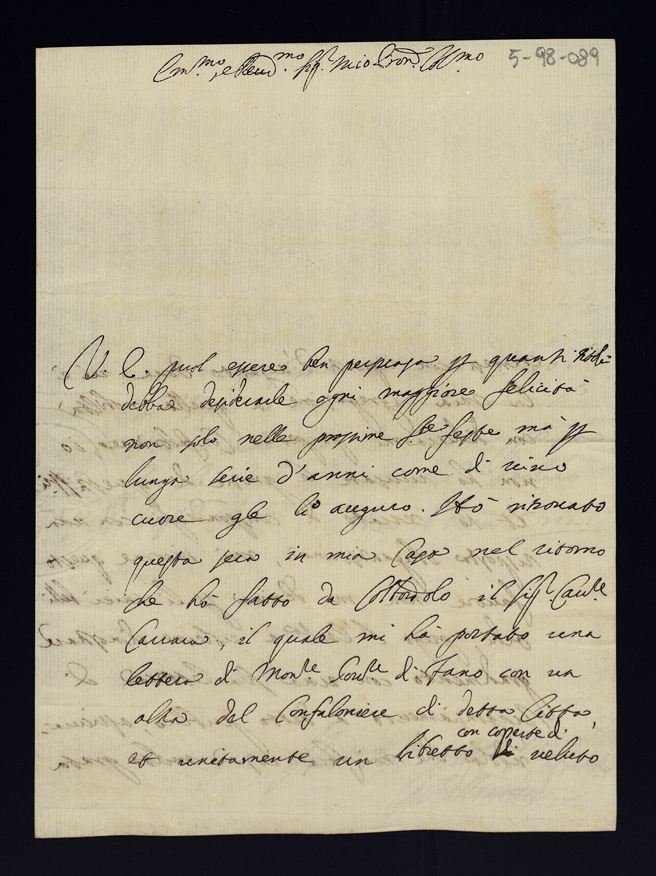 Em.mo e Rend.mo Sig.r mio Pron. Col.mo
5-98-089
V. E. può essere ben persuasa p quanti
debba desiderarle ogni maggiore felicità
non solo nelle prossime S.te feste mà p
lunga serie d'anni come di vivo
cuore gle lo auguro. Hò ritrovato
questa sera in mia Casa nel ritorno
che hò fatto da il Sig.r Cau.re
Carrara, il quale mi hà portato una
lettera di Mons.re di Fano con un
altra del Confaloniere di detta Città,
con coperte di
et unitamente un libretto di veluto